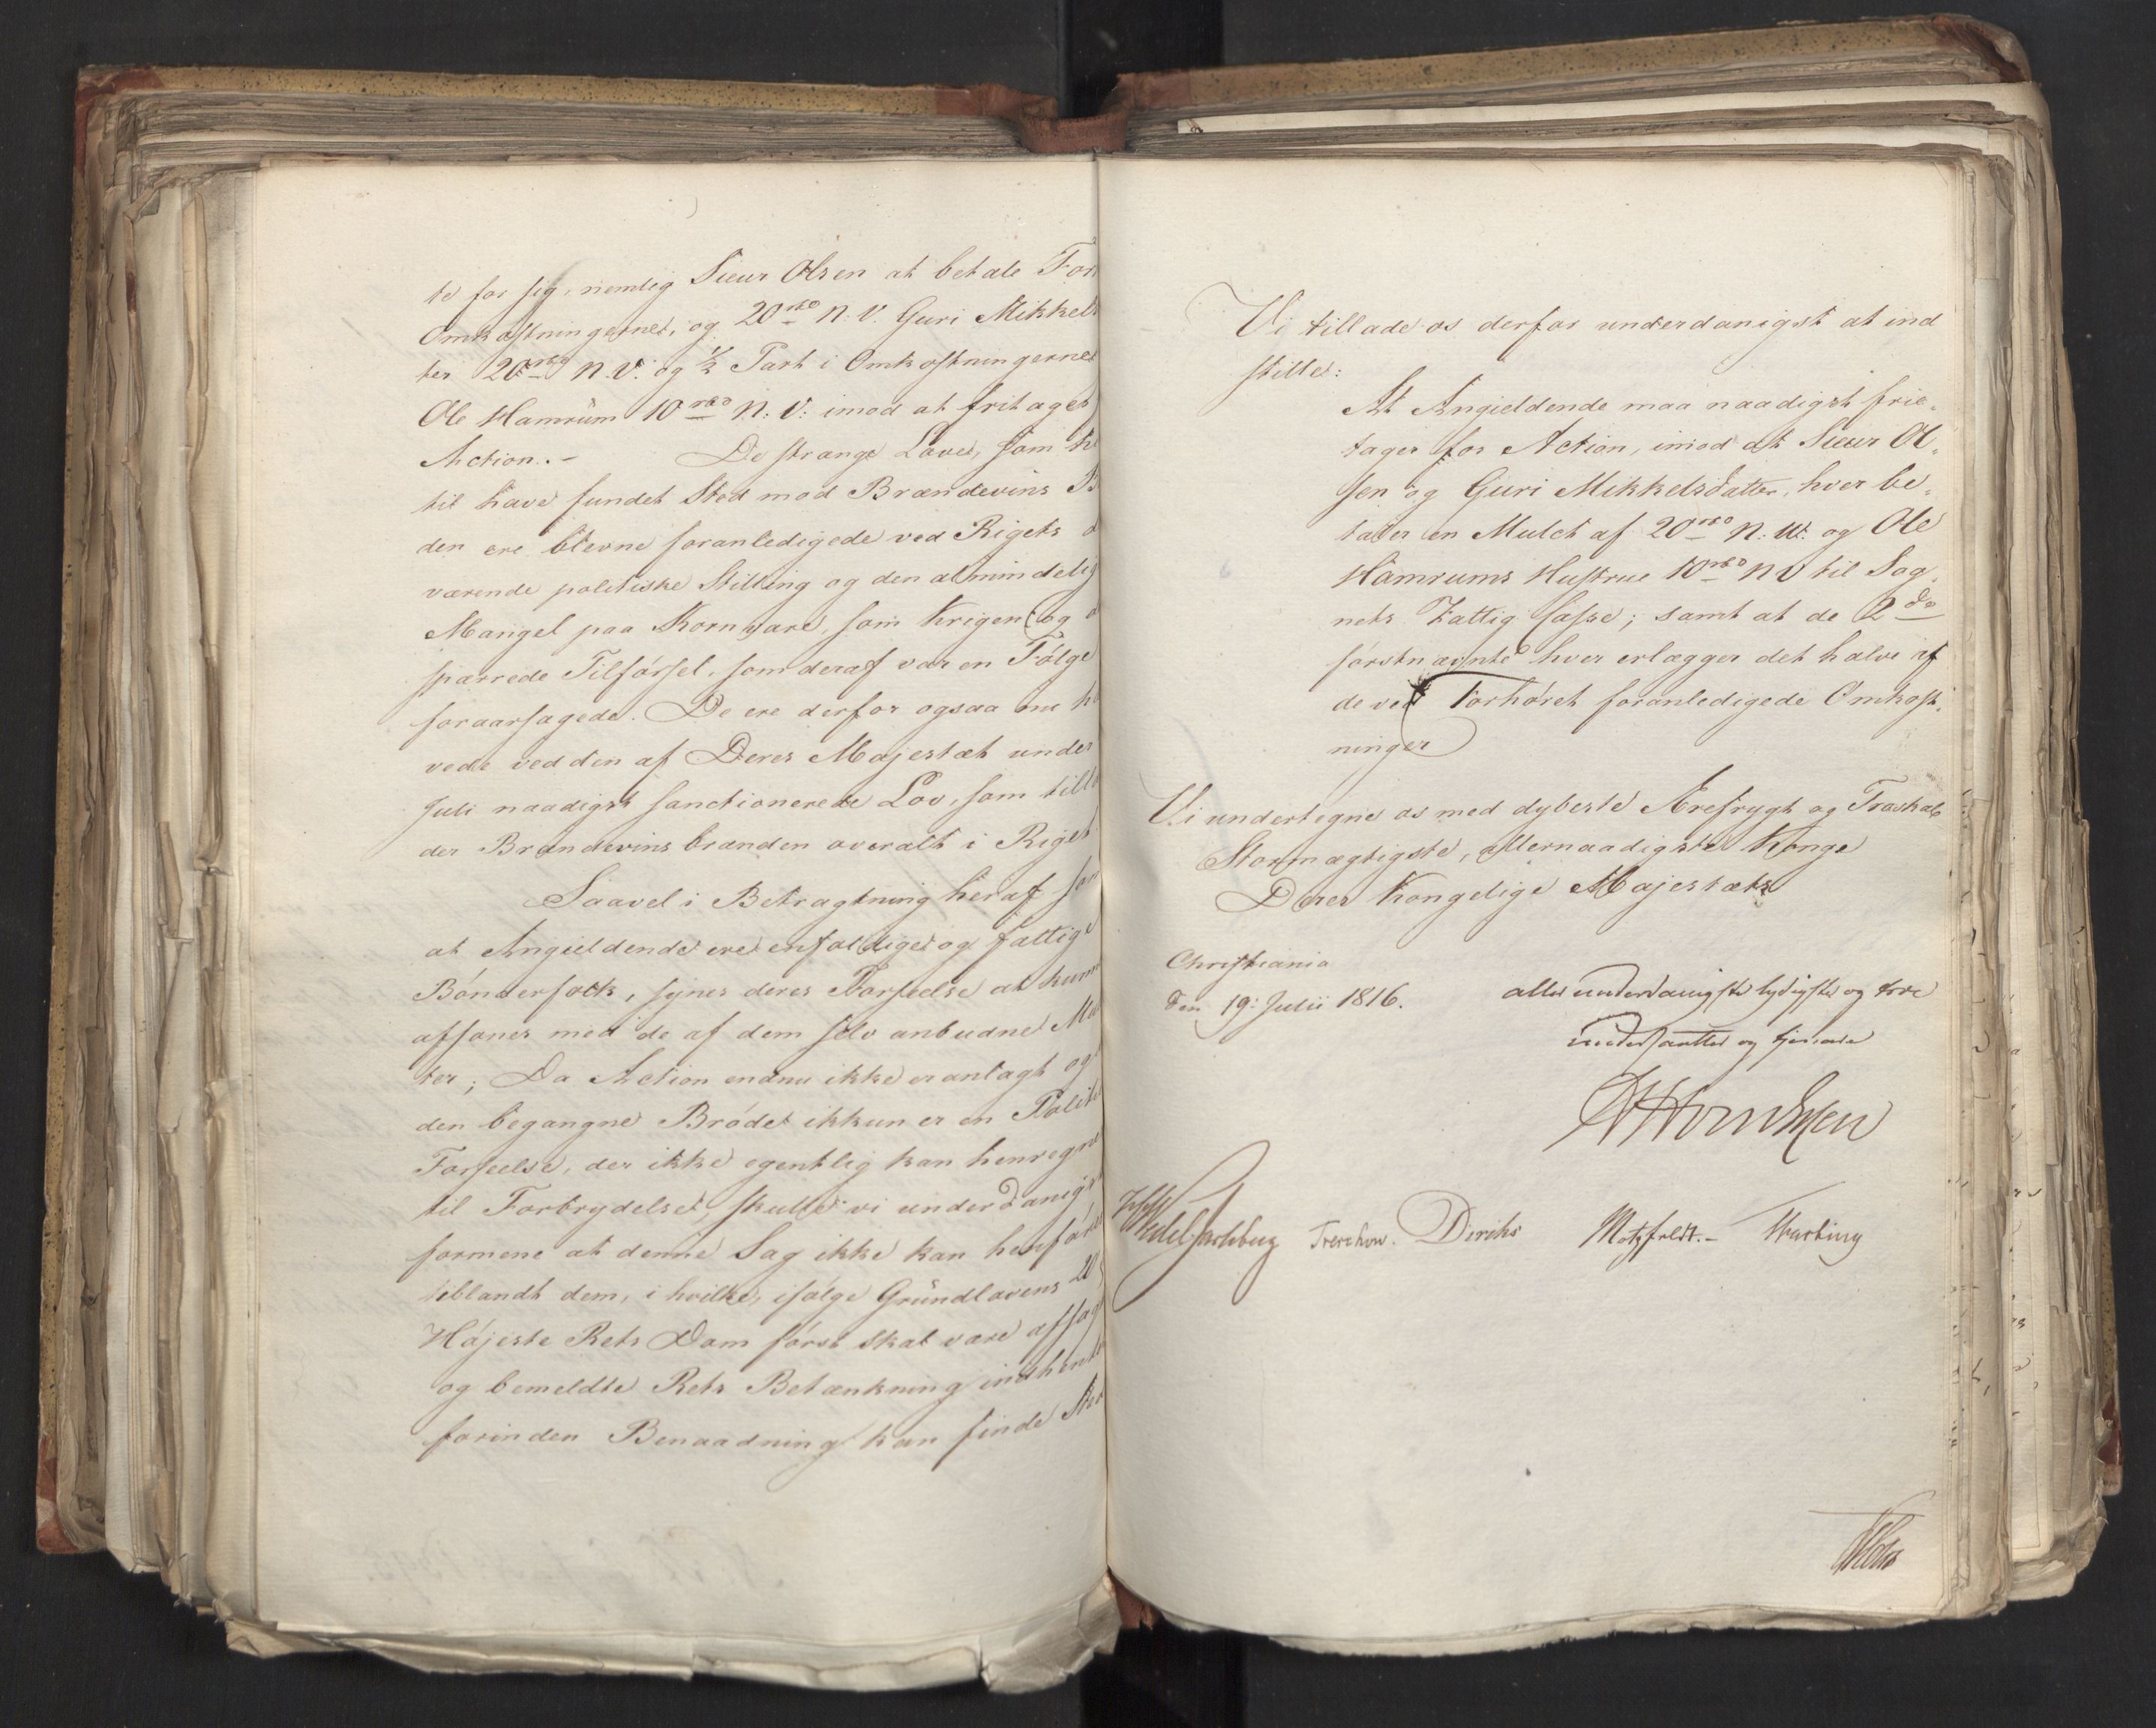 te for sig, nemlig Siur Olsen at betale For
Omkostningerne, og 20 rbd N. V. Guri Mikkels
ter 20 rbd N. V. og 1/2 Part i Omkostningerne
Ole Hamrum 10 rbd N: V: imod at fritages
Action. - De strænge Love, som hi
til have fundet Sted mod Brændevins B
den ere blevne foranledigede ved Rigets d
værende politiske Stilling og den almindelig
Mangel paa Kornvare, som Krigen og d
spærrede Tilførsel, som deraf var en Følge
foraarsagede. De ere derfor ogsaa nu hæ
vede ved den af Deres Majestæt under
Juli naadigst sanctionerede Lov, som tilla
der Brændevinsbrænden overalt i Riget
Saavel i Betragtning heraf som
at Angieldende ere enfoldige og fattige
Bønderfolk, synes deres Forseelse at kunn
afsones med de af dem selv anbudne Mul
ter; Da Action endnu ikke er anlagt og
den begangne Brøde ikkun er en Politi
Forseelse, der ikke egentlig kan henregne
til Forbrydelse, skulle vi underdanigst
formene at denne Sag ikke kan henføre
iblandt dem, i hvilke, ifølge Grundlovens 20 §
Højeste Rets Dom først skal være afsagt
og bemeldte Rets Betænkning indhente
forinden Benaadning kan finde Ste
Vi tillade os derfor underdanigst at ind
stille:
At Angieldende maa naadigst frie-
tages for Action, imod at Siur Ol-
sen og Guri Mikkelsdatter, hver be-
taler en Mulct af 20 rbd N. V. og Ole
Hamrums Hustrue 10 rbd N V til Sog-
nets Fattig Casse; samt at de 2 de
førstnævnte hver erlægger det halve af
de ved Forhøret foranledigede Omkost-
ninger
Vi undertegne os med dybeste Ærefrygt og Troskab
Stormægtigste, Allernaadigste Konge
Deres Kongelige Majestæts
Christiania
den 19: Julii 1816.
allerunderdanigste lydigste og troe
undersaatter og tjenere
Wedel Jarlsberg Treschow. Diriks Motzfeldt. -